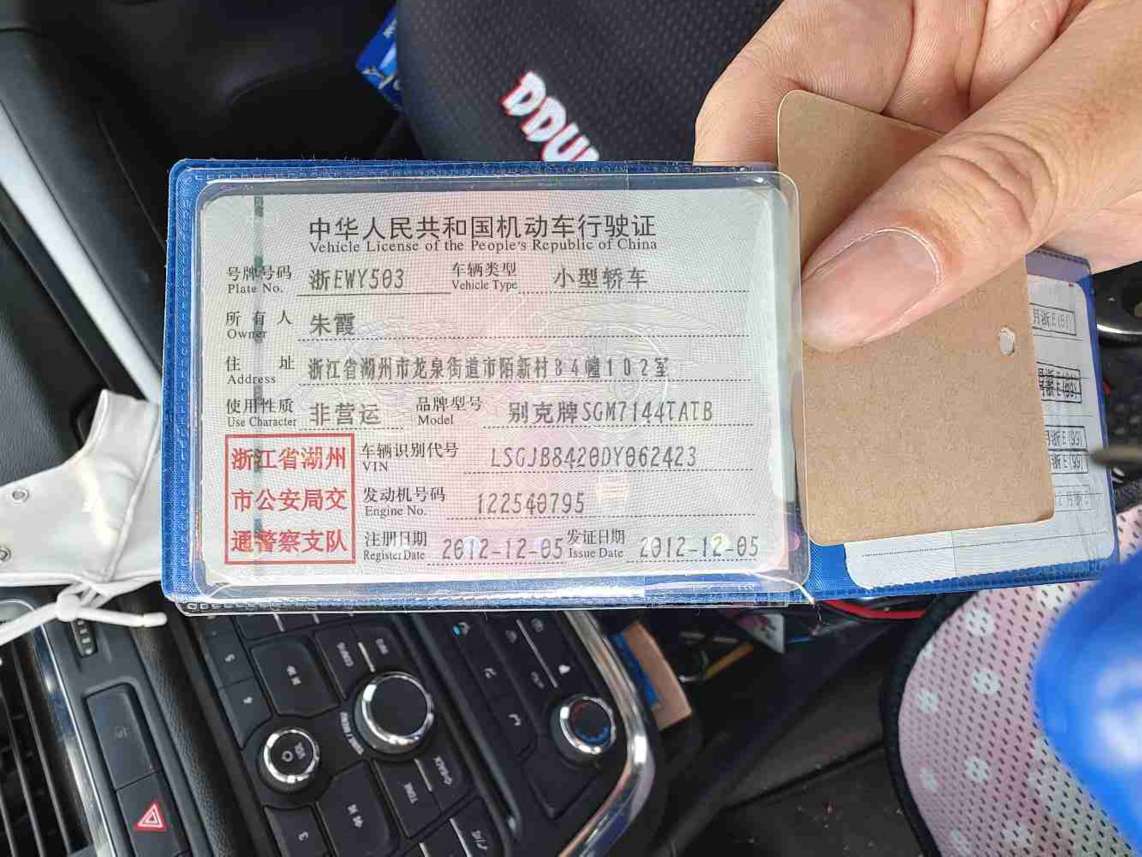 DDU
中华人民共和国机动车行驶证
Vehicle License of the People's Republic of China
号牌号码 浙EWY503 车辆类型 小型轿车
Plate No. Vehicle Type
所有人 朱霞
Owner
住址 浙江省湖州市龙泉街道市陌新村84幢102室
Address
使用性质 非营运 品牌型号 别克牌SGM7144TATB
Use Character Model
浙江省湖州
市公安局交
通警察支队
车辆识别代号 LSGJB8420DY062423
VIN
发动机号码 122540795
Engine No.
注册日期 2012-12-05 发证日期 2012-12-05
Register Date Issue Date
VOL
TONE
BACK
5
4
3